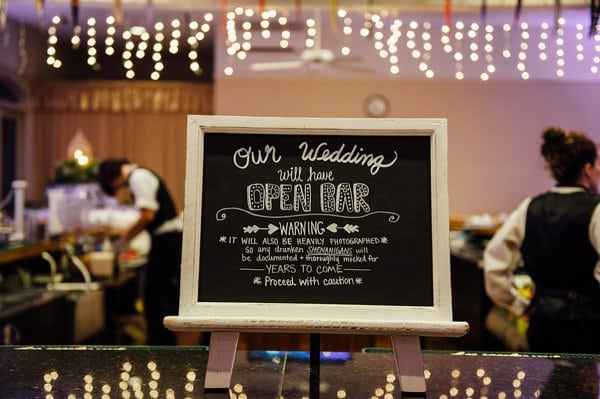 Our Wedding
will have
OPEN BAR
WARNING
*IT WILL ALSO BE HEAVILY PHOTOGRAPHED*
so any drunken SHENANIGANS will
be documented + thoroughly mocked for
YEARS TO COME
* Proceed with caution *